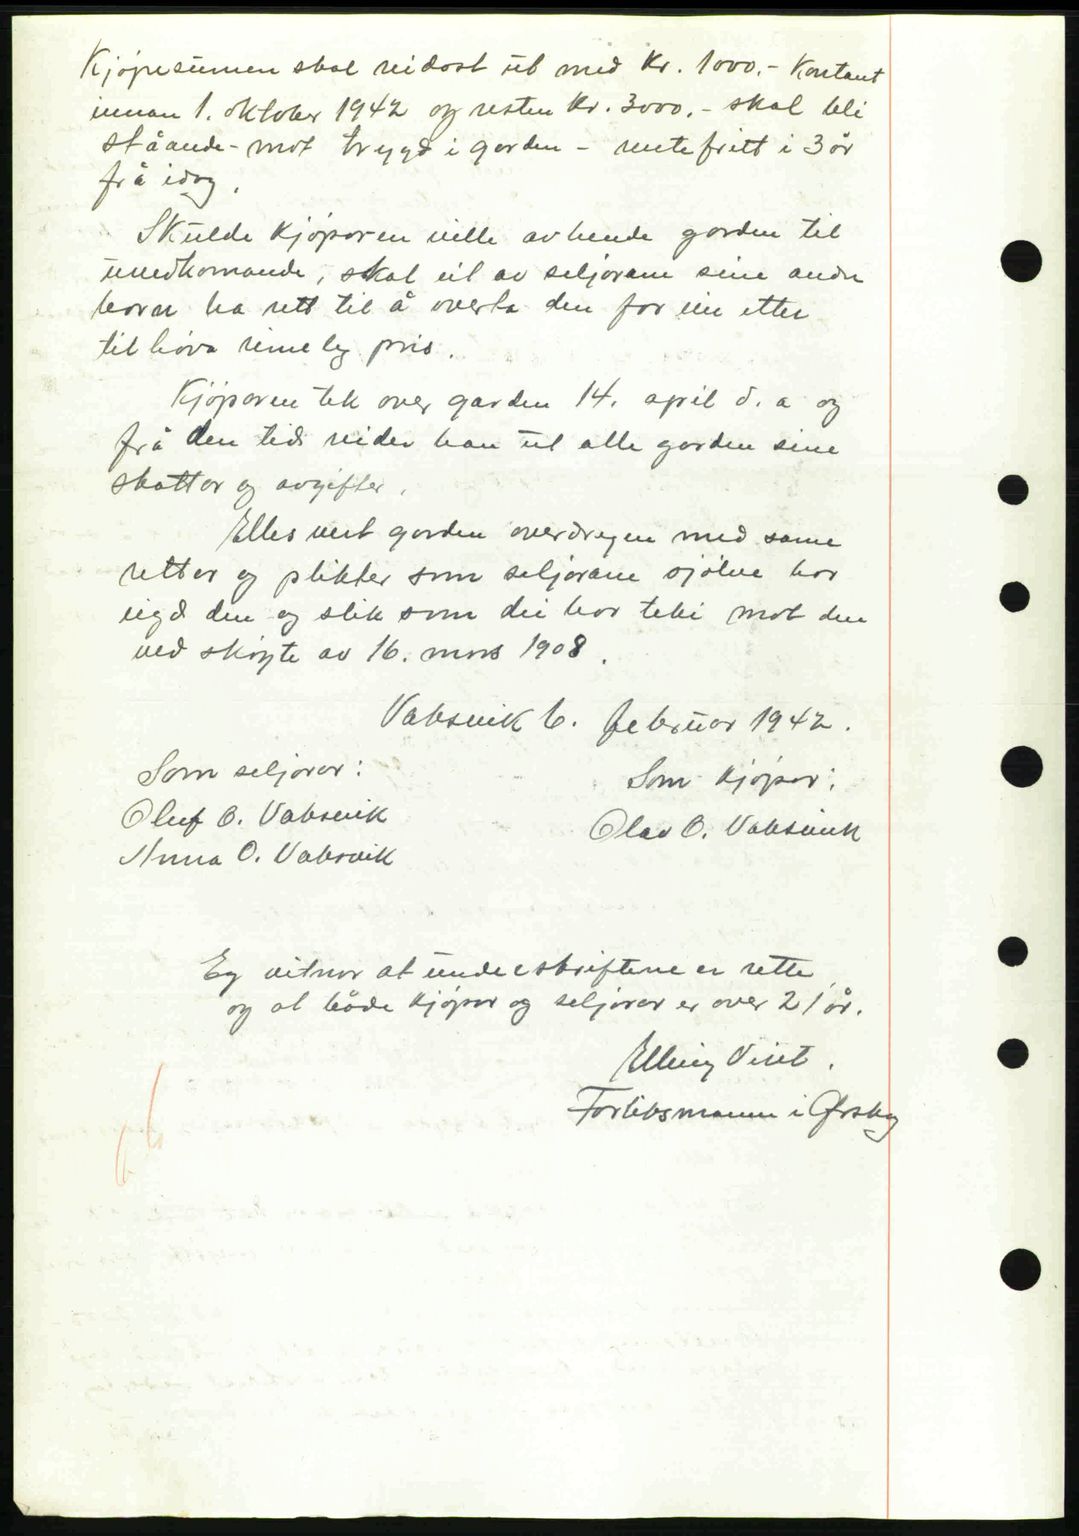 Kjøpesumen skal reidast ut med Kr. 1000.- Kontant
innan 1. oktober 1942 og resten Kr. 3000.- skal bli
ståande - mot trygd i garden - rentefritt i 3 år
frå idag.
Skulde kjøparen ville avhende garden til
uvedkomande, skal eit av seljarane sine andre
born ha rett til å overta den for ein etter
tilhøva rimeleg pris.
Kjøparen tek over garden 14. april d. a og
frå den tid reider han ut alle garden sine
skattar og avgifter.
Elles vert garden overdregen med same
rettar og plikter som seljarane sjølve har
eigd den og slik som dei har teki mot den
ved skøyte av 16. mars 1908.
Vatsvik 6. februar 1942.
Som seljarar:
Som kjøpar:
Oluf O. Vatsvik
Olav O. Vatsvik
Anna O. Vatsvik
Eg vitnar at underskriftene er rette
og at både kjøpar og seljarar er over 21 år.
Elling Viset.
Forliksmann i Ørskog